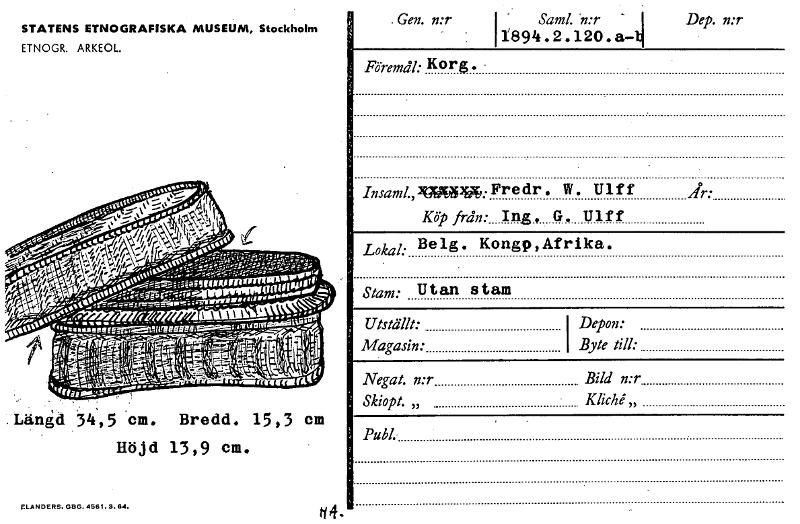 STATENS ETNOGRAFISKA MUSEUM, Stockholm
ETNOGR. ARKEOL.
Längd 34,5 cm. Bredd. 15,3 cm
Höjd 13,9 cm.
ELANDERS. GBG. 4561. 3. 64.
Gen. n:r Saml. n:r Dep. n:r
1894.2.120.a-b
Föremål: Korg.
Insaml., xxxxxx Fredr. W. Ulff År:
Köp från: Ing. G. Ulff
Lokal: Belg. Kongo,Afrika.
Stam: Utan stam
Utställt: Depon:
Magasin: Byte till:
Negat. n:r Bild n:r
Skiopt. „ Kliché „
Publ.